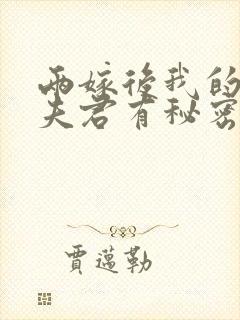 兩嫁後我的
夫君有秘密
賈邁勒